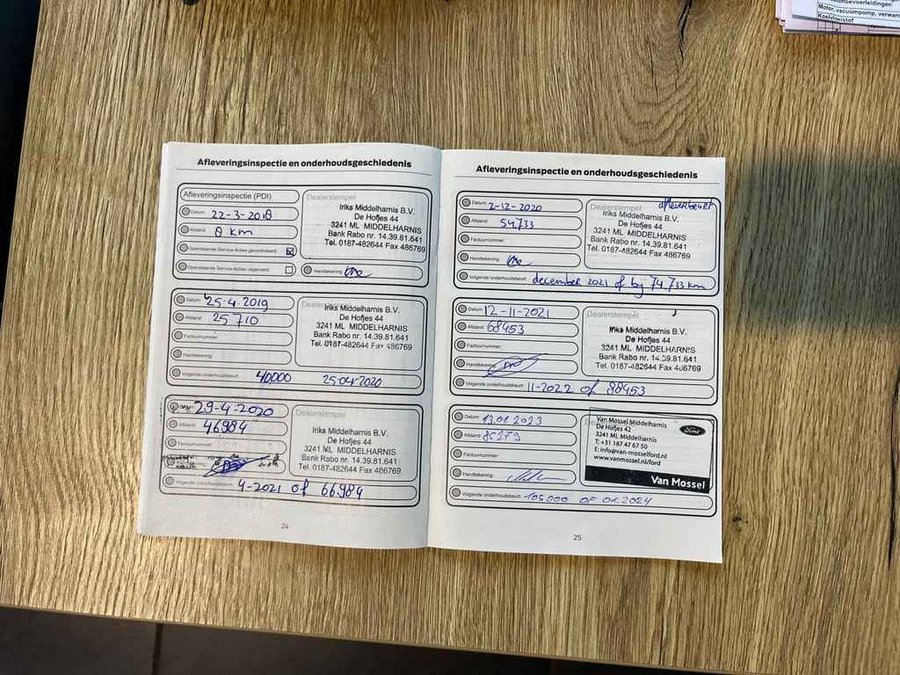 Motor, vacuümpomp, verwarm
Koelvloeistof
Afleveringsinspectie en onderhoudsgeschiedenis
Afleveringsinspectie (PDI)
Datum: 22-3-2018
Afstand: 8 km
Openstaande Service-Acties gecontroleerd
Openstaande Service-Acties uitgevoerd
Dealerstempel
Iriks Middelharnis B.V.
De Hofjes 44
3241 ML MIDDELHARNIS
Bank Rabo nr. 14.39.81.641
Tel. 0187-482644 Fax 486769
Handtekening:
Datum: 25-4-2019
Afstand: 25710
Factuurnummer:
Handtekening:
Volgende onderhoudsbeurt: 40000 25-04-2020
Dealerstempel
Iriks Middelharnis B.V.
De Hofjes 44
3241 ML MIDDELHARNIS
Bank Rabo nr. 14.39.81.641
Tel. 0187-482644 Fax 486769
Datum: 29-4-2020
Afstand: 46984
Factuurnummer:
Handtekening:
Volgende onderhoudsbeurt: 4-2021 of 66.984
Dealerstempel
Iriks Middelharnis B.V.
De Hofjes 44
3241 ML MIDDELHARNIS
Bank Rabo nr. 14.39.81.641
Tel. 0187-482644 Fax 486769
24
Afleveringsinspectie en onderhoudsgeschiedenis
Datum: 2-12-2020
Afstand: 54.733
Factuurnummer:
Handtekening:
Volgende onderhoudsbeurt: december 2021 of bij 74.733 km
Dealerstempel afleverbeurt
Iriks Middelharnis B.V.
De Hofjes 44
3241 ML MIDDELHARNIS
Bank Rabo nr. 14.39.81.641
Tel. 0187-482644 Fax 486769
Datum: 12-11-2021
Afstand: 68453
Factuurnummer:
Handtekening:
Volgende onderhoudsbeurt: 11-2022 of 88453
Dealerstempel
Iriks Middelharnis B.V.
De Hofjes 44
3241 ML MIDDELHARNIS
Bank Rabo nr. 14.39.81.641
Tel. 0187-482644 Fax 486769
Datum: 13.01.2023
Afstand: 85279
Factuurnummer:
Handtekening:
Volgende onderhoudsbeurt: 105000 OF 01.2024
Van Mossel Middelharnis
De Hofjes 42
3241 ML Middelharnis
T: +31 187 47 67 50
E: info@van-mosselford.nl
www.vanmossel.nl/ford
Ford
Van Mossel
25